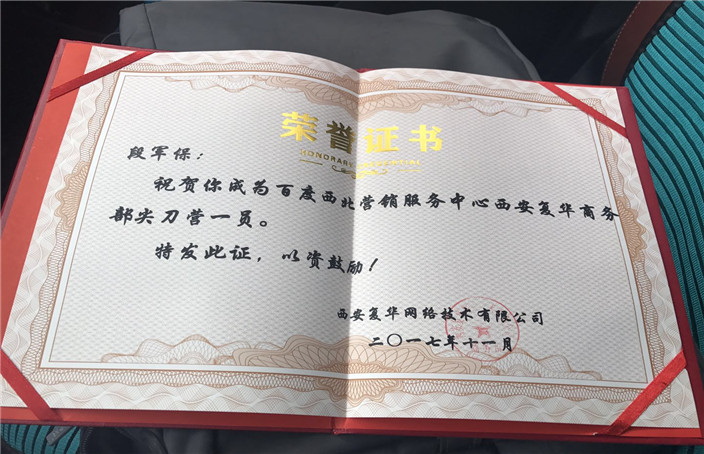 荣誉证书
HONORARY
段军保：
祝贺你成为百度西北营销服务中心西安复华商务
部尖刀营一员。
特发此证，以资鼓励！
西安复华网络技术有限公司
二〇一七年十一月